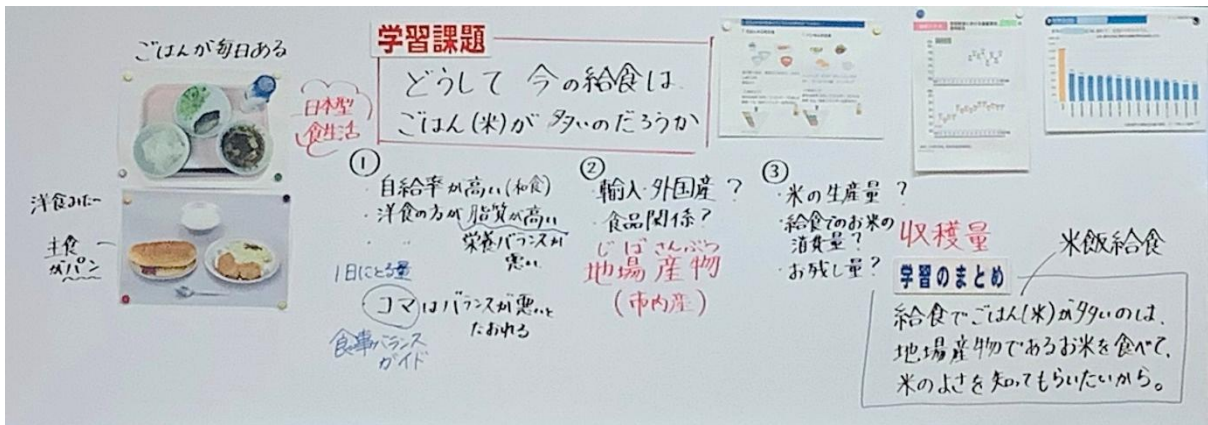 ごはんが毎日ある
洋食みたい
主食
がパン
日本型
食生活
学習課題
どうして 今の給食は
ごはん(米)が 多いのだろうか
①
・自給率が高い(和食)
・洋食の方が脂質が高い
栄養バランスが
悪い
1日にとる量
コマはバランスが悪いと
たおれる
食事バランス
ガイド
②
・輸入・外国産?
・食品関係?
じばさんぶつ
地場産物
(市内産)
③
・米の生産量?
・給食でのお米の
消費量?
・お残し量?
収穫量
米飯給食
学習のまとめ
給食でごはん(米)が多いのは、
地場産物であるお米を食べて、
米のよさを知ってもらいたいから。